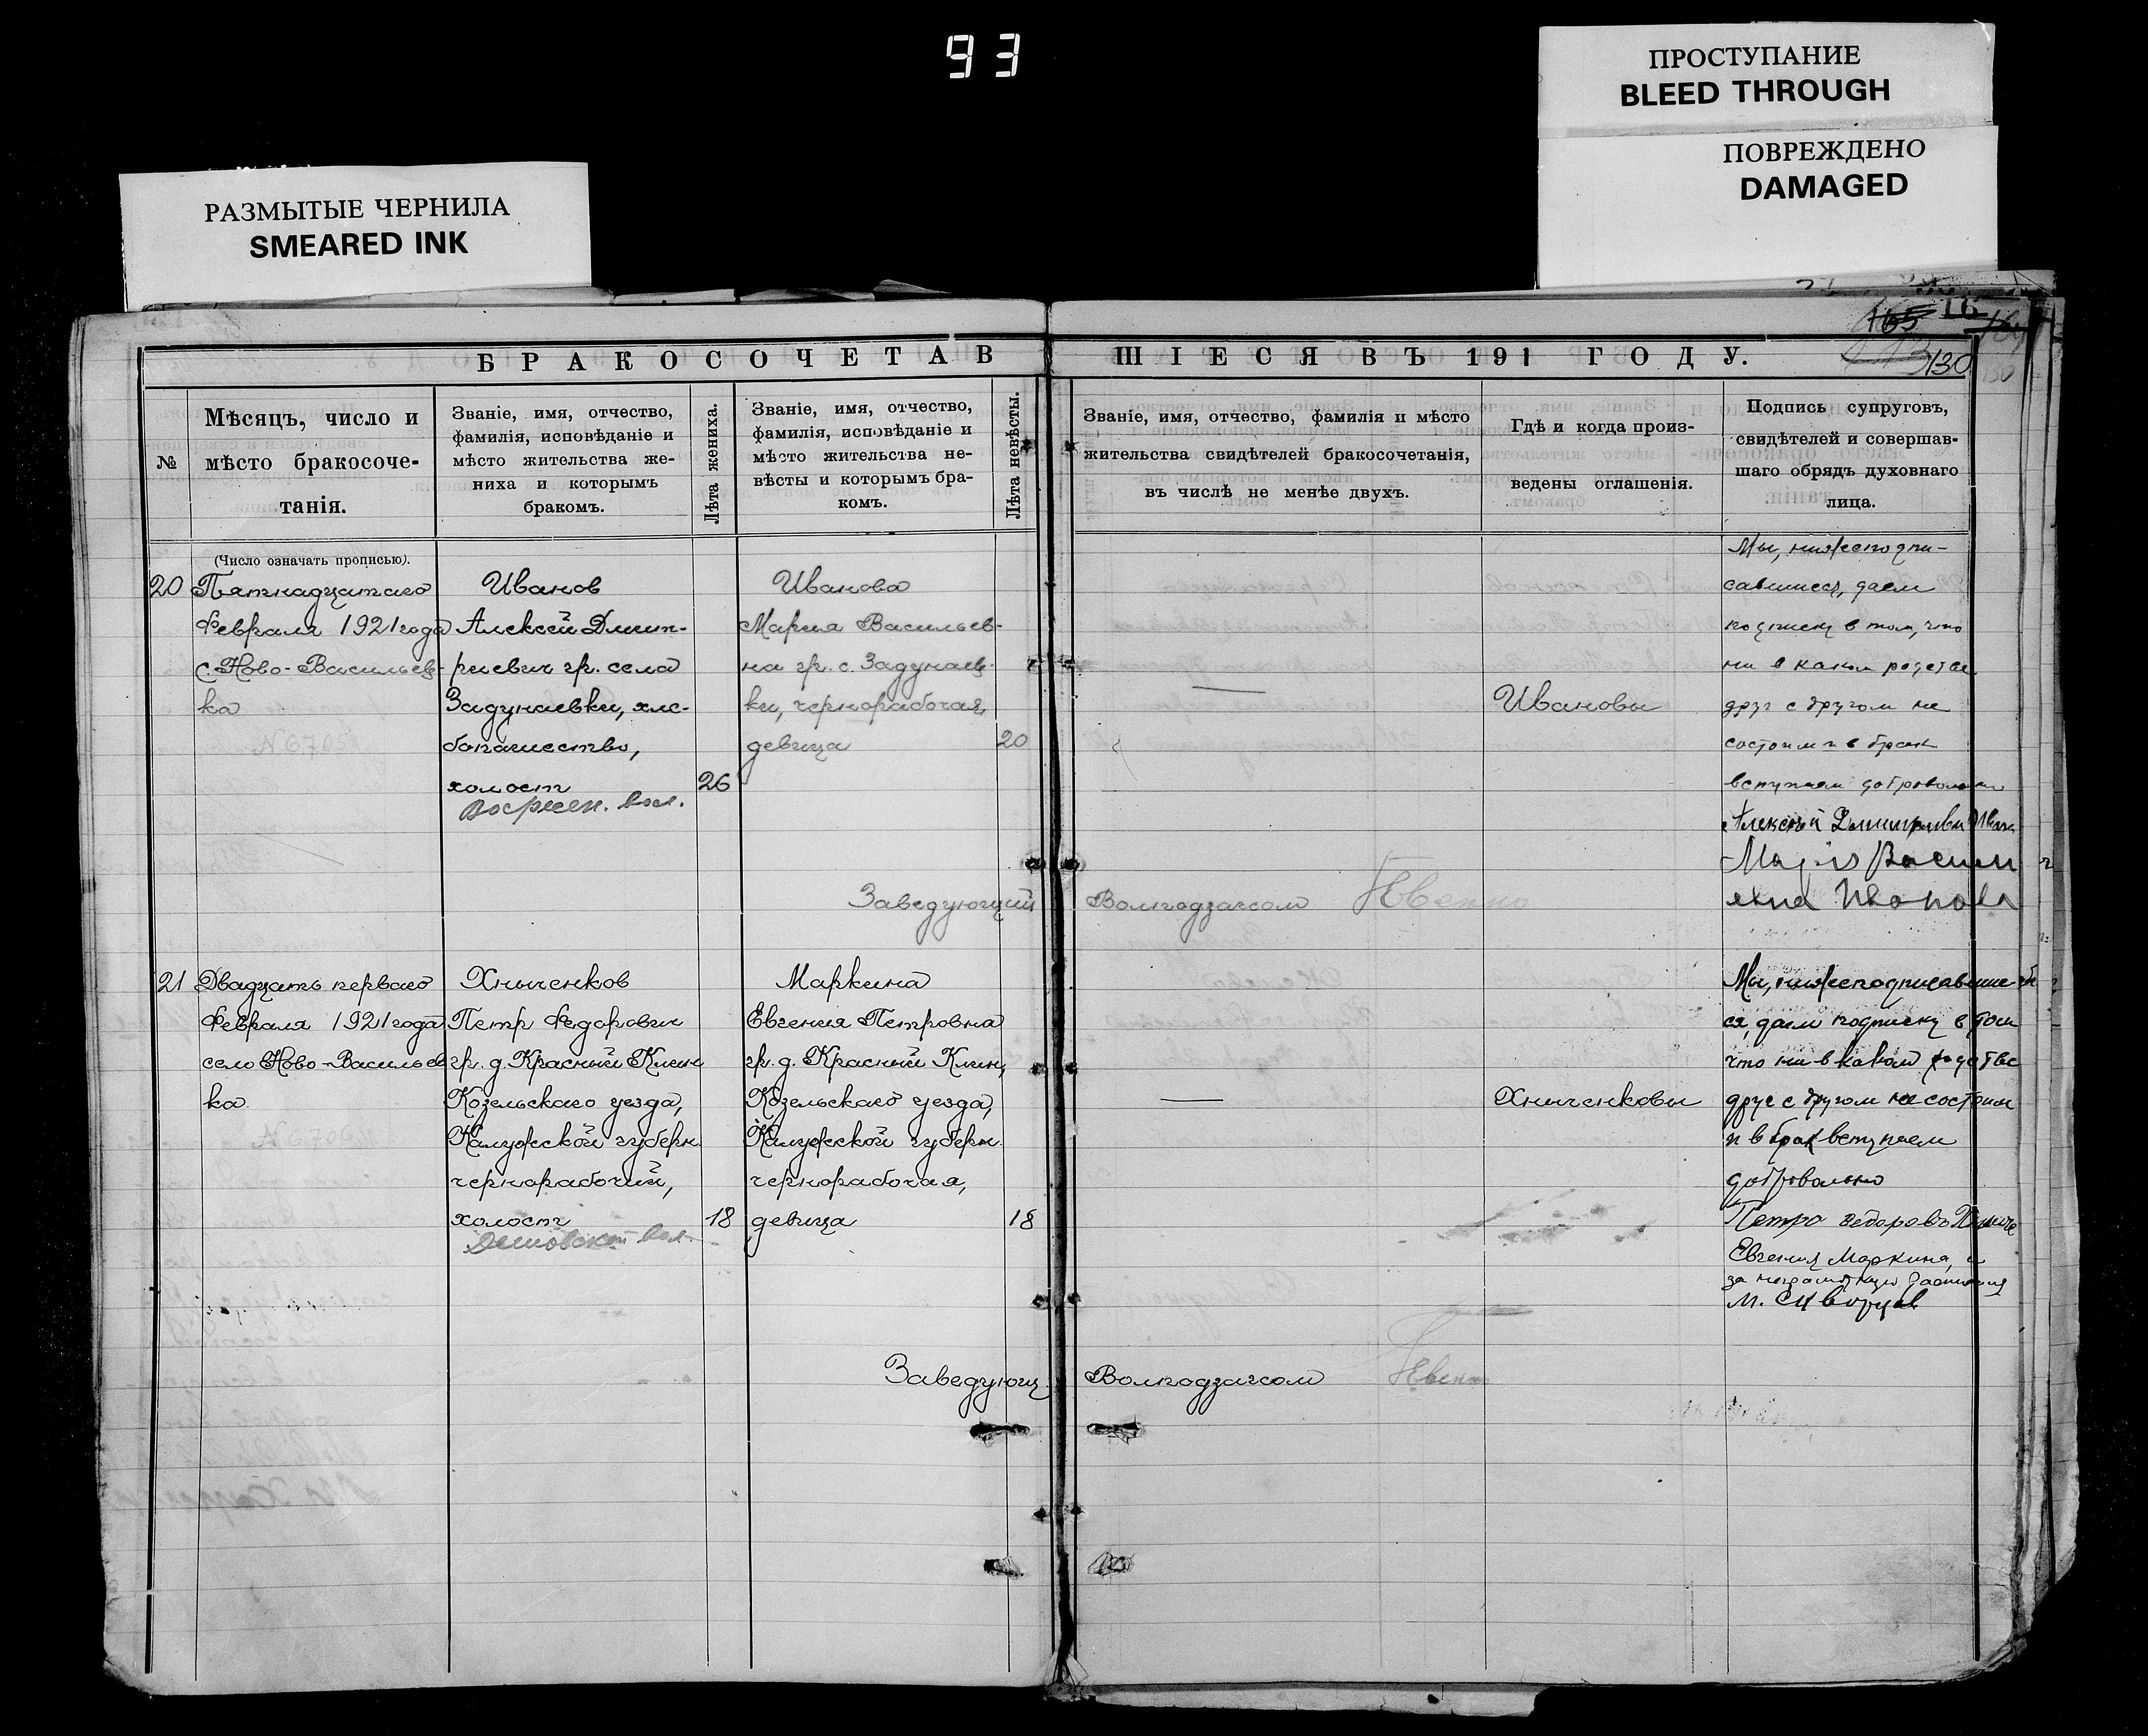 93
ПРОСТУПАНИЕ
BLEED THROUGH
ПОВРЕЖДЕНО
DAMAGED
РАЗМЫТЫЕ ЧЕРНИЛА
SMEARED INK
165 16
130
БРАКОСОЧЕТАВ ШІЕСЯ ВЪ 191 ГОДУ.
№
Мѣсяцъ, число и
мѣсто бракосоче-
танія.
Званіе, имя, отчество,
фамилія, исповѣданіе и
мѣсто жительства же-
ниха и которымъ
бракомъ.
Лѣта жениха.
Званіе, имя, отчество,
фамилія, исповѣданіе и
мѣсто жительства не-
вѣсты и которымъ бра-
комъ.
Лѣта невѣсты.
Званіе, имя, отчество, фамилія и мѣсто
жительства свидѣтелей бракосочетанія,
въ числѣ не менѣе двухъ.
Гдѣ и когда произ-
ведены оглашенія.
Подпись супруговъ,
свидѣтелей и совершав-
шаго обрядъ духовнаго
лица.
(Число означать прописью).
20
Пятнадцатаго
Февраля 1921 года
с. Ново-Васильев-
ка
N 6705
Иванов
Алексей Дмит-
риевич гр. села
Задунаевки, хле-
бопашество,
холост
26
Иванова
Мария Васильев-
на гр. с. Задунаев-
ки, чернорабочая,
девица
20
Ивановы
Мы, нижеподпи-
савшиеся, даем
подписку в том, что
ни в каком родстве
друг с другом не
состоим и в брак
вступаем добровольно
Марія Васили
евна Иванова
Заведующий Волподзагсом
21
Двадцать перваго
Февраля 1921 года
село Ново-Васильев
ка
N 6706
Хныченков
Петр Федорович
гр. д. Красный Клин
Козельскаго уезда,
Калужской губерн.
чернорабочий,
холост
18
Маркина
Евгения Петровна
гр. д. Красный Клин,
Козельскаго уезда,
Калужской губерн.
чернорабочая,
девица
18
Хныченковы
Мы, нижеподписавшие
ся, даем подписку в том
что ни в каком родстве
друг с другом не состоим
и в брак вступаем
добровольно
Евгения Маркина, а
М. Скворцов
Заведующ. Волподзагсом